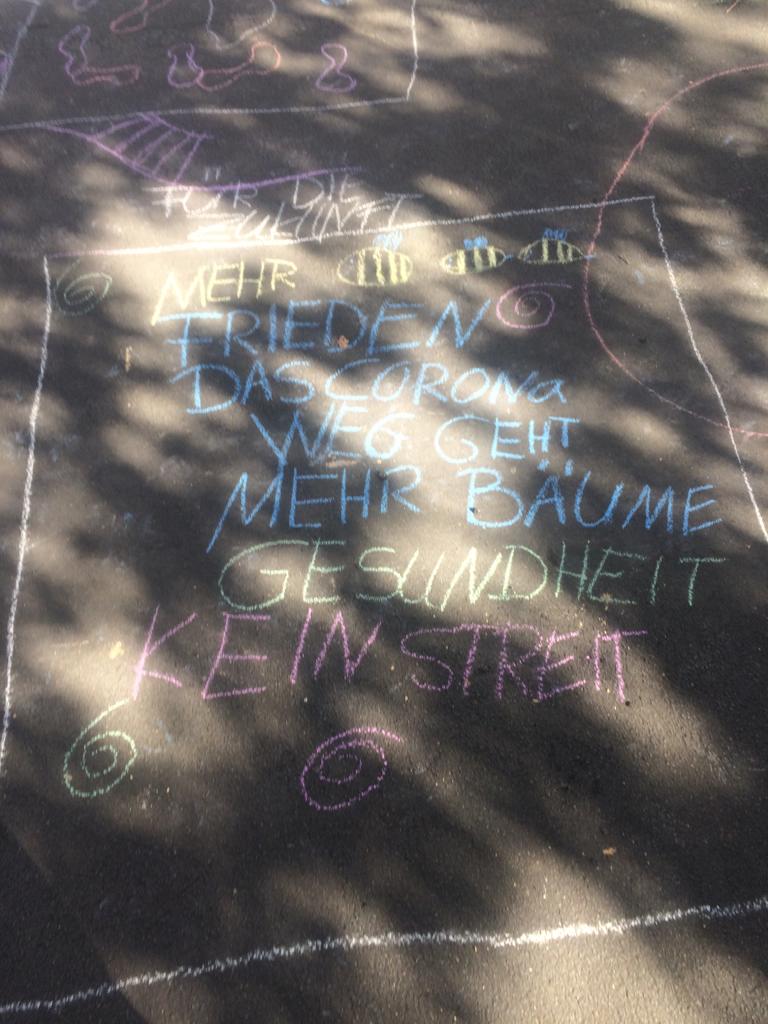 FÜR DIE
ZUKUNFT
MEHR
FRIEDEN
DAS CORONA
WEG GEHT
MEHR BÄUME
GESUNDHEIT
KEIN STREIT